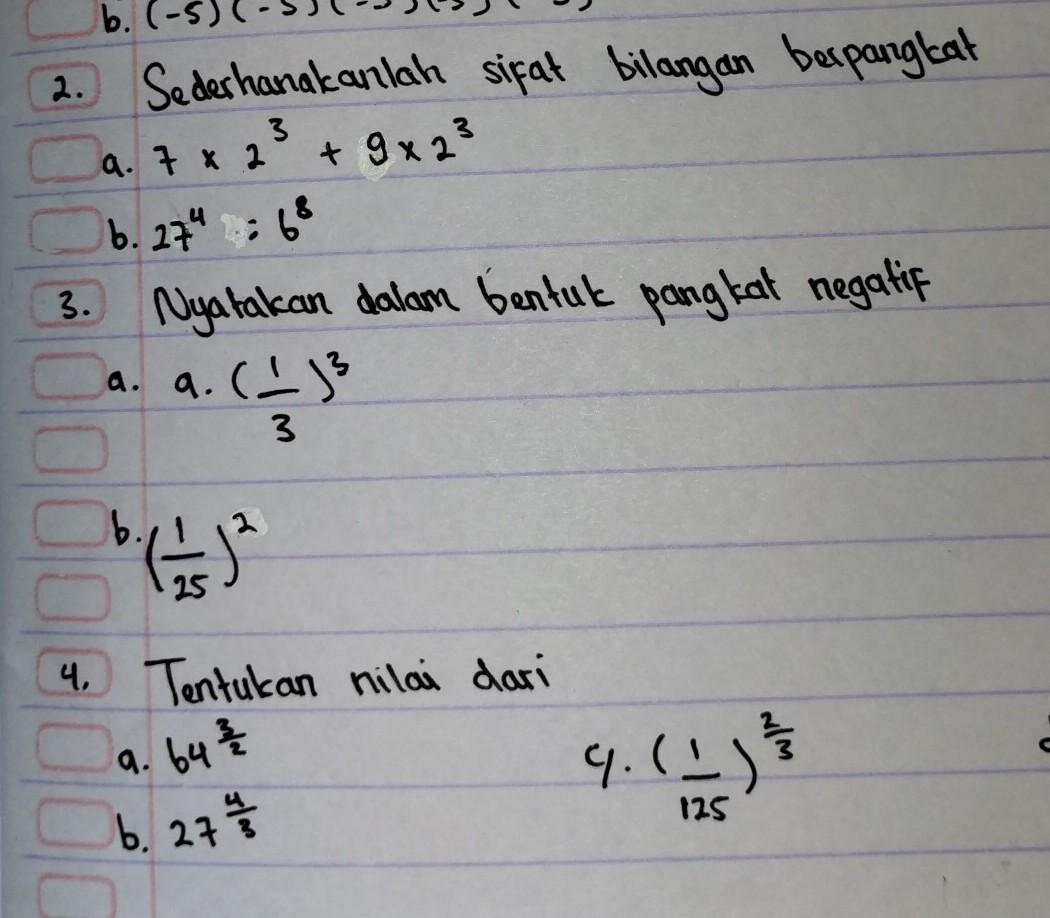 b. (-5)(-5)(-5)(-5)(-5)
2. Sederhanakanlah sifat bilangan berpangkat
a. 7 x 2³ + 9 x 2³
b. 27⁴ : 6⁸
3. Nyatakan dalam bentuk pangkat negatif
a. a. (1/3)³
b. (1/25)²
4. Tentukan nilai dari
a. 64^(3/2) c. (1/125)^(2/3)
b. 27^(4/3)